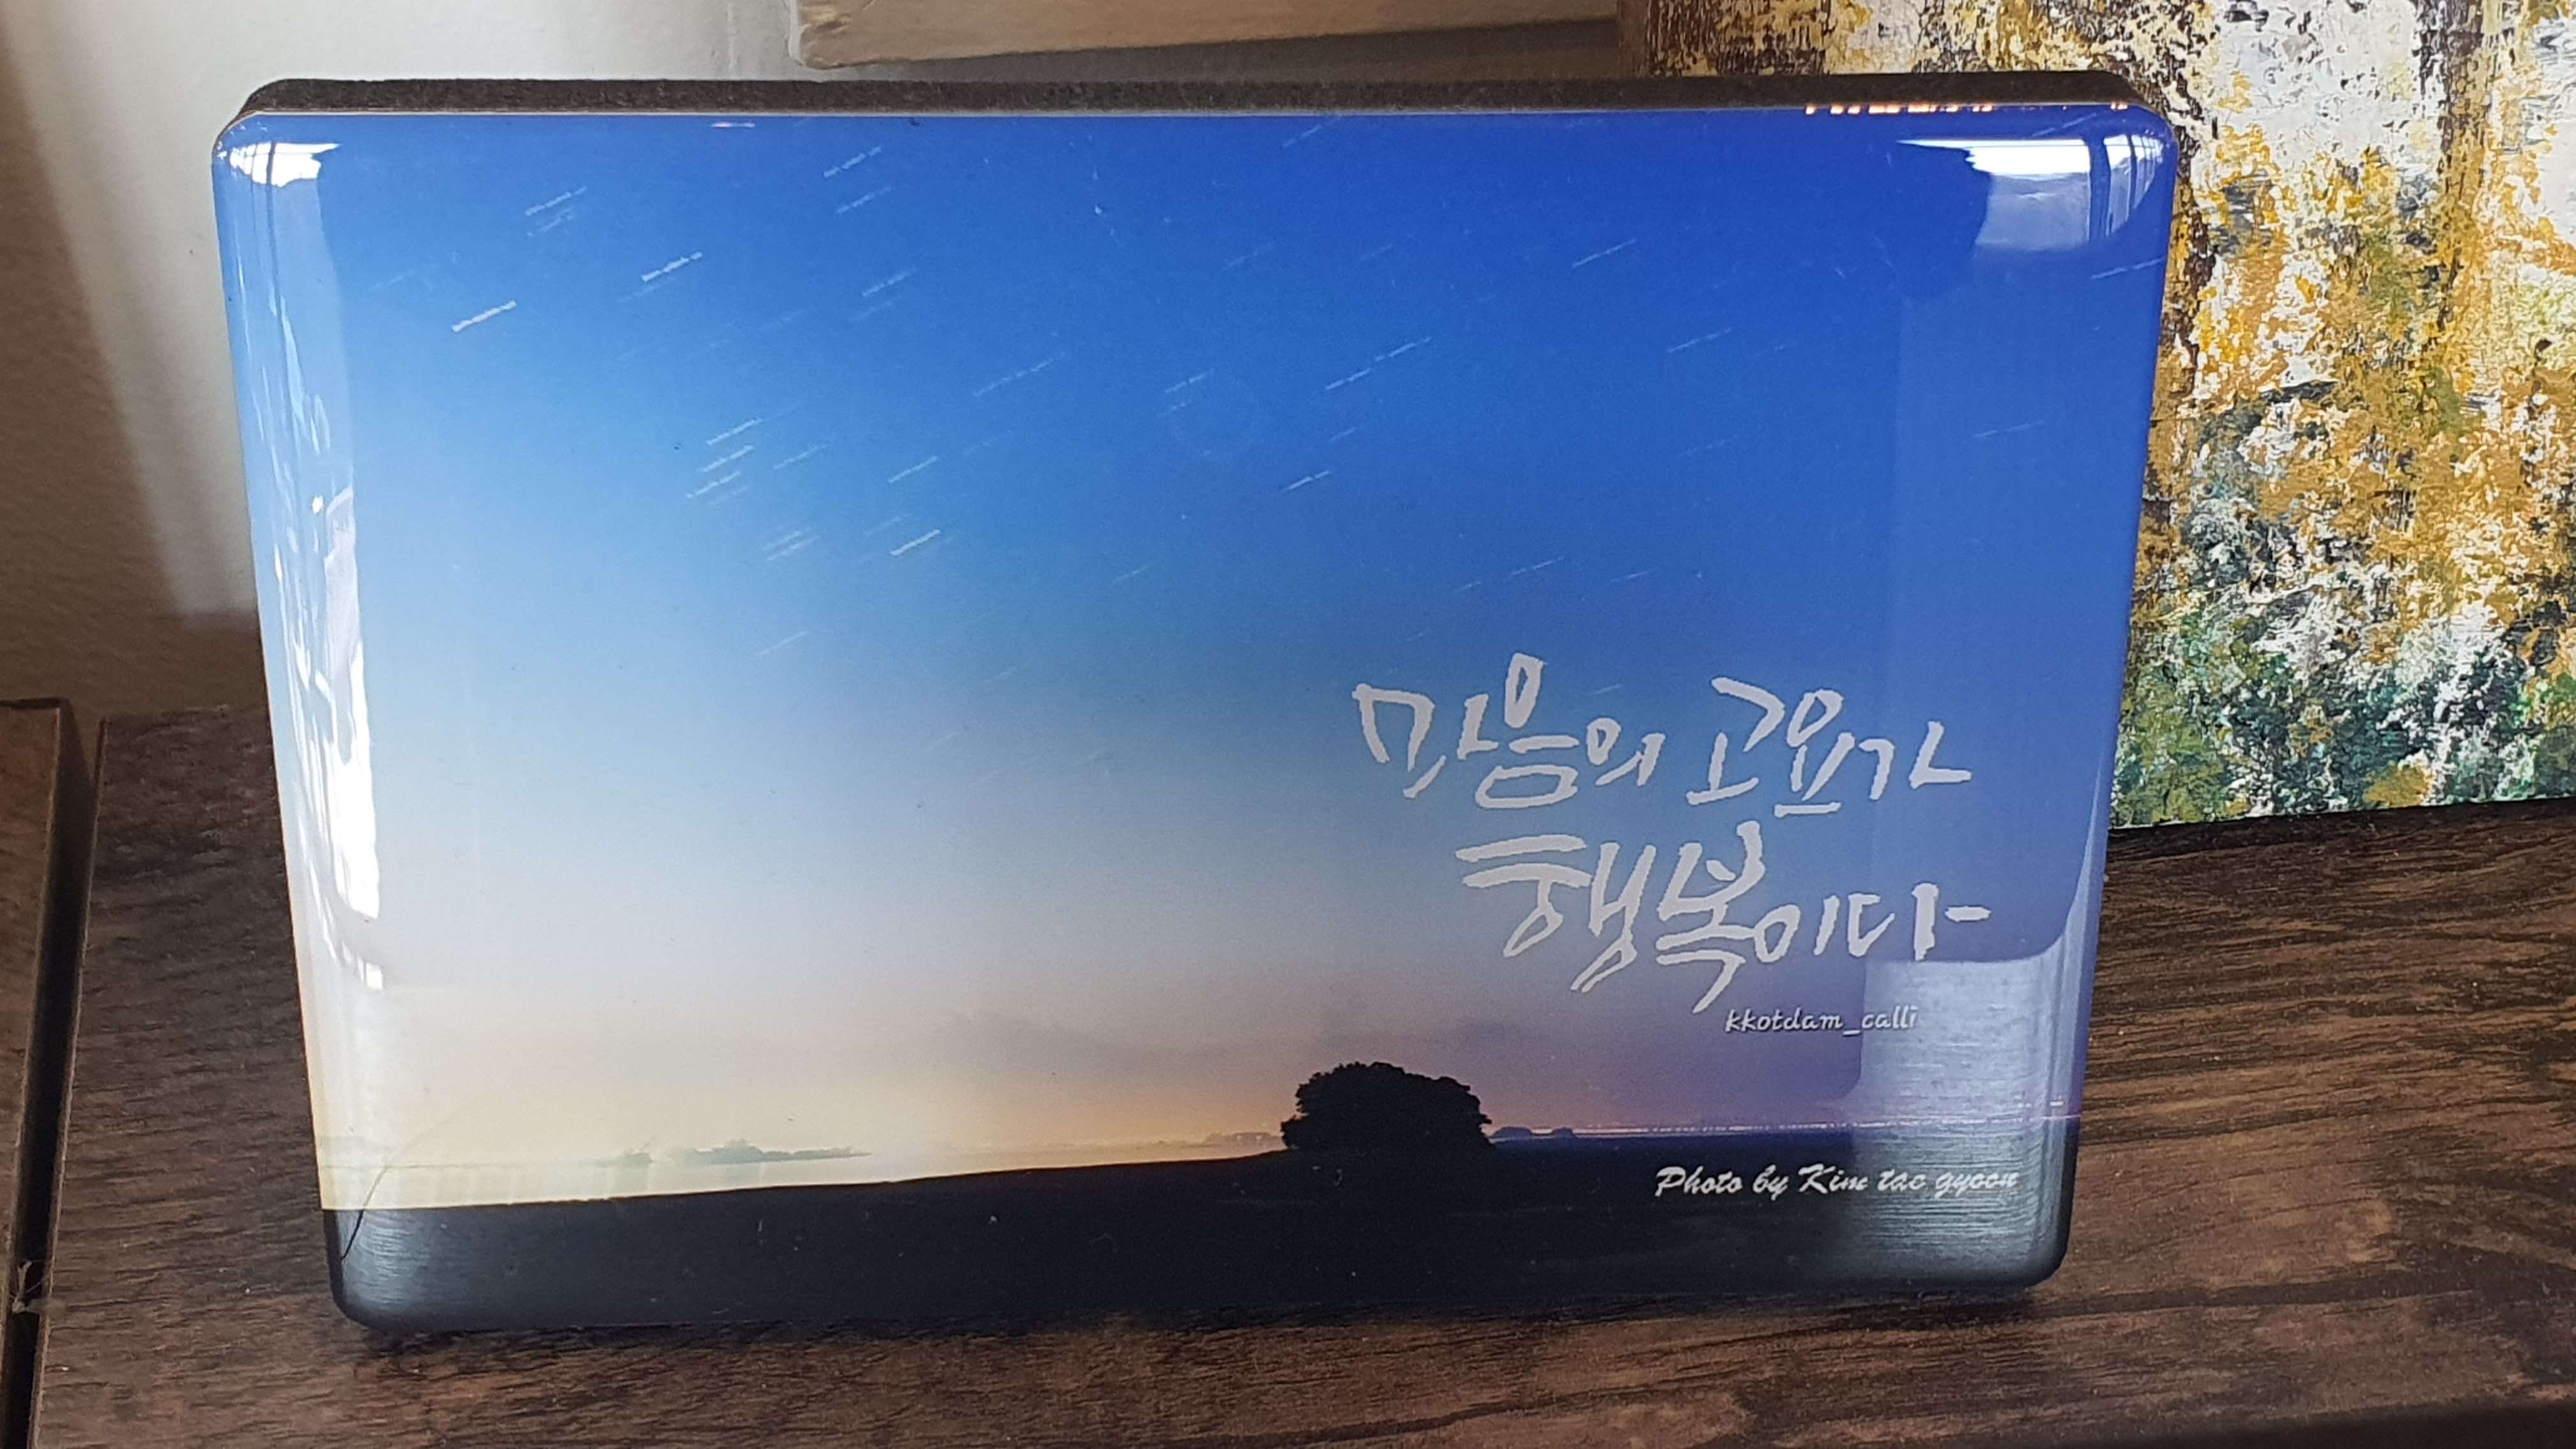 마음의 고요가
행복이다
kkotdam_calli
Photo by Kim tae gyoon